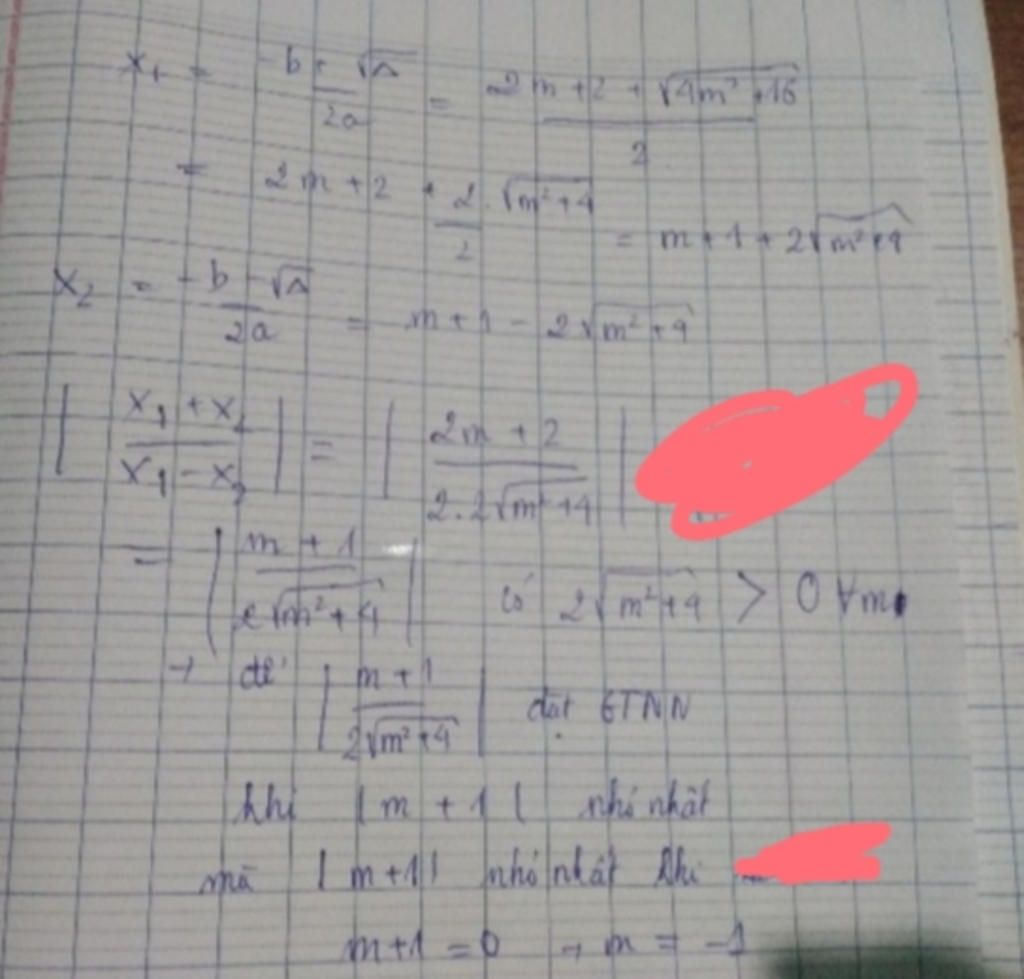 x₁ = (-b + √Δ)/(2a) = (2m + 2 + √(4m² + 16))/2
= 2m + 2 + 2.√(m² + 4)/2 = m + 1 + 2√(m² + 4)
x₂ = (-b - √Δ)/(2a) = m + 1 - 2√(m² + 4)
|(x₁ + x₂)/(x₁ - x₂)| = |(2m + 2)/(2.2√(m² + 4))|
= |(m + 1)/(2√(m² + 4))| có 2√(m² + 4) > 0 ∀m
→ để |(m + 1)/(2√(m² + 4))| đạt GTNN
khi |m + 1| nhỏ nhất
mà |m + 1| nhỏ nhất khi
m + 1 = 0 → m = -1